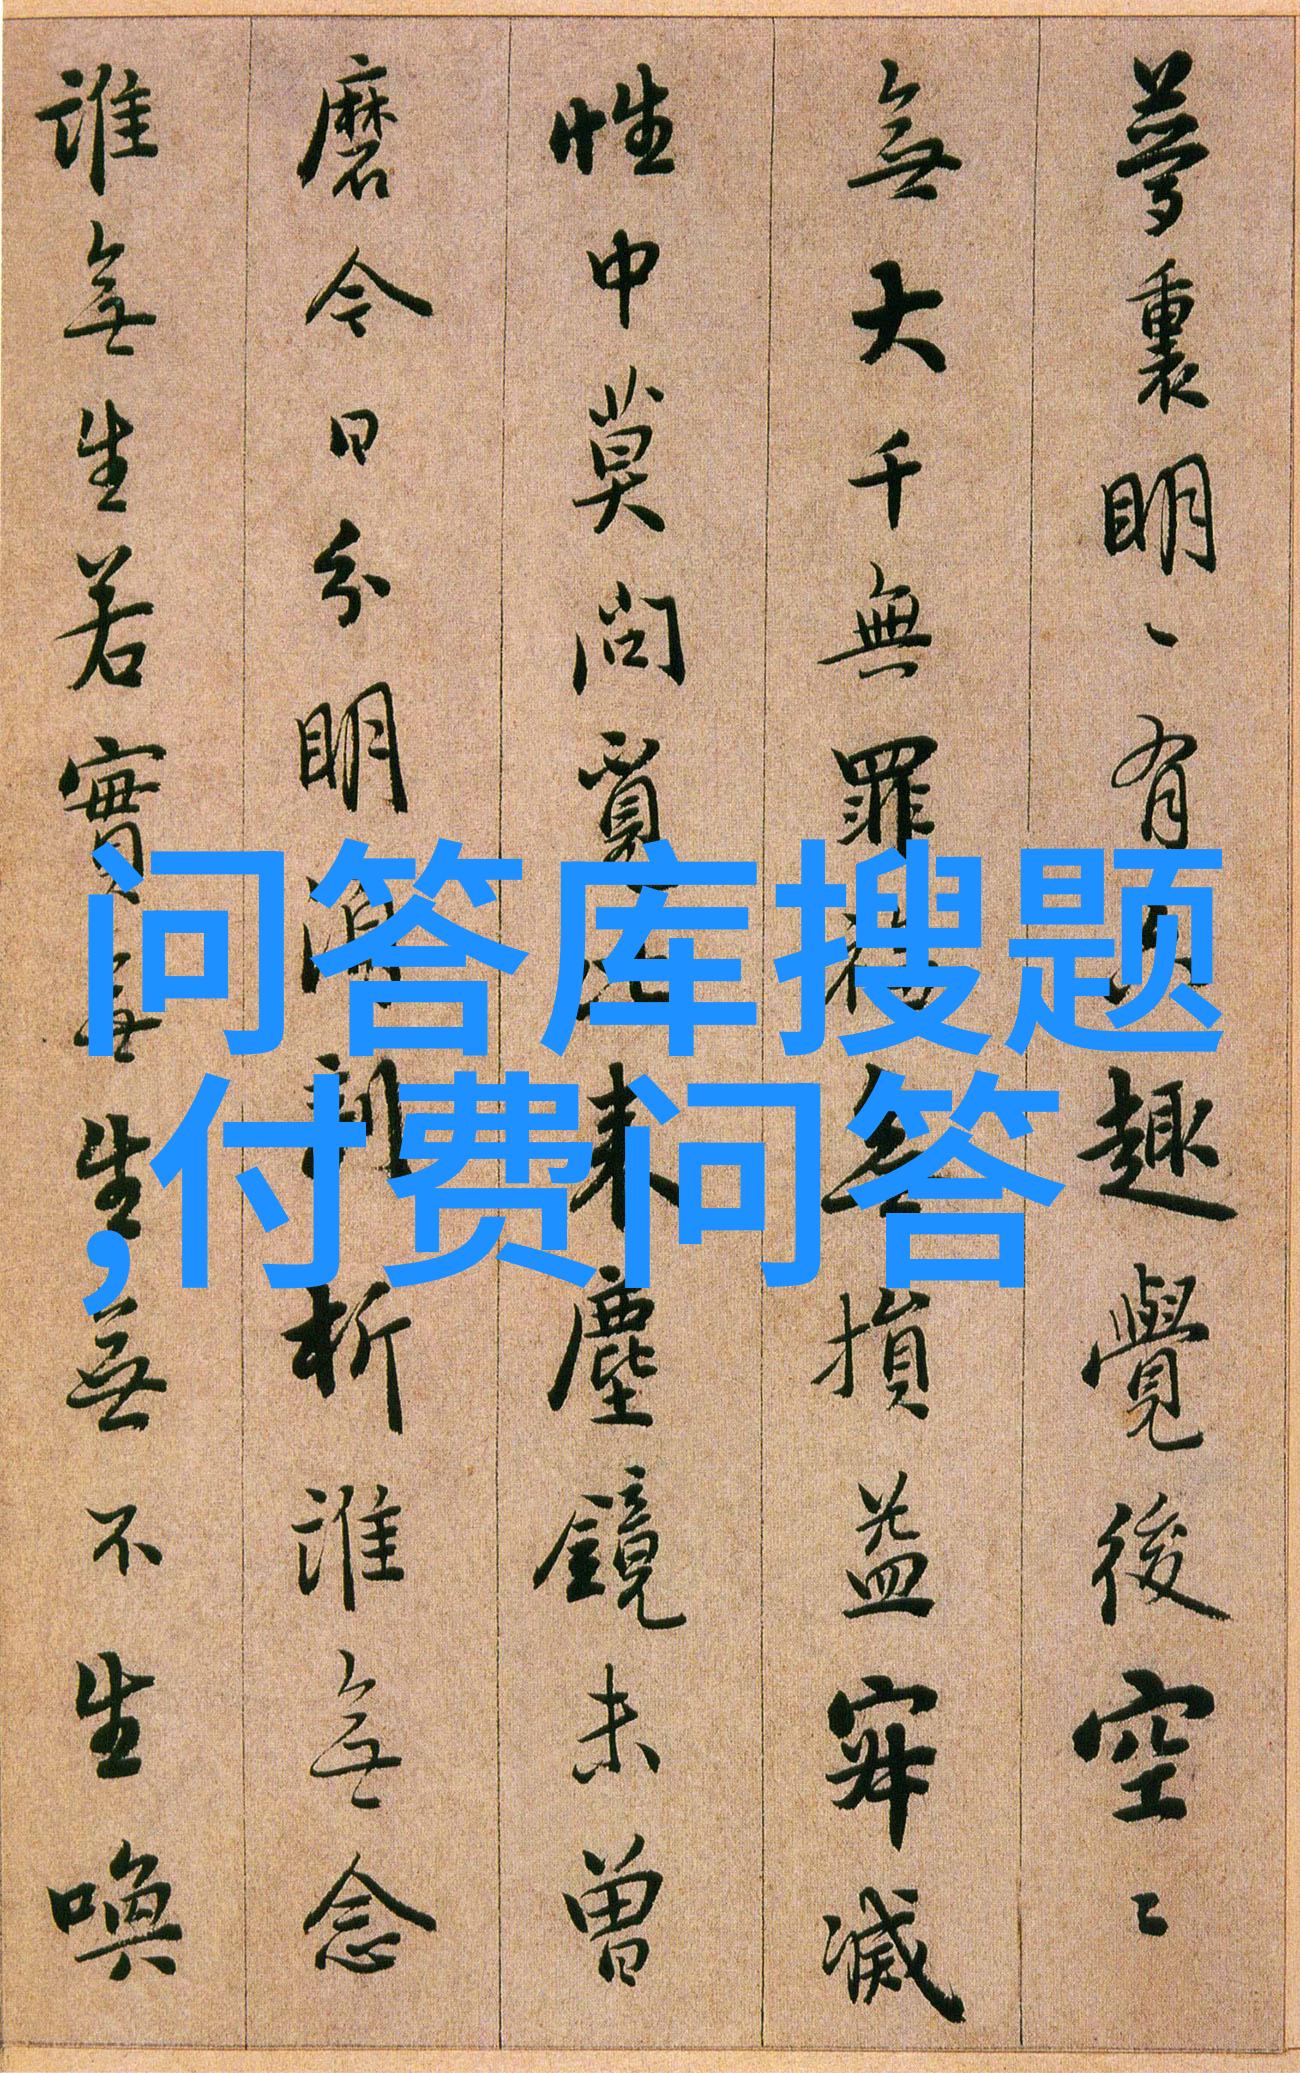 夢裏明〻有六趣覺後空〻
無大千無罪福無損益寂滅
性中莫問覓比来塵鏡未曾
磨今日分明剖析誰無念
誰無生若實無生無不生喚
问答库搜题
,付费问答